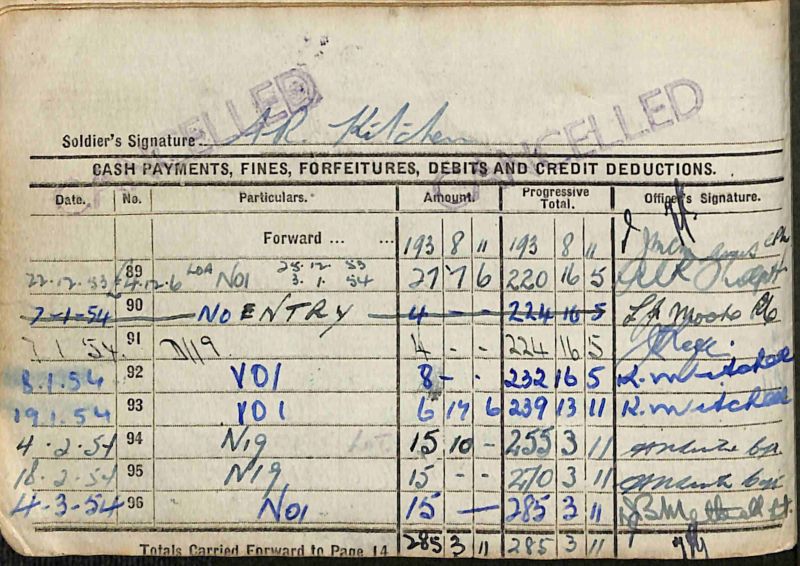 CANCELLED CANCELLED
Soldier's Signature A R. Kitchen
CASH PAYMENTS, FINES, FORFEITURES, DEBITS AND CREDIT DEDUCTIONS.
Date. No. Particulars. Amount. Progressive Total. Officer's Signature.
Forward ... ... 193 8 " 193 8 "
22.12.53 89 £4.12.6 LOA NO1 25.12 53 3.1.54 27 7 6 220 16 5
7-1-54 90 NO ENTRY 4 - - 224 16 5 Moore
7 1 54 91 D119. 4 - - 224 16 5
8.1.54 92 YO1 8 - - 232 16 5 K. Mitchell
19.1.54 93 YO1 6 17 6 239 13 11 K. Mitchell
4.2.54 94 N19 15 10 - 255 3 11
18.2.54 95 N19 15 - - 270 3 11
4-3-54 96 NO1 15 — 285 3 11
Totals Carried Forward to Page 14 285 3 11 285 3 11